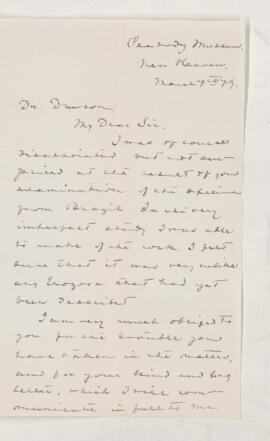 Peabody Museum,
New Haven,
March 7th 79.
Dr. Dawson,
My Dear Sir.
I was of course
disappointed but not sur-
prised at the result of your
examination of the specimen
from Brazil. In the very
imperfect study I was able
to make of the work I felt
sure that it was very unlike
any Eozoon that had yet
been described.
I am very much obliged to
you for the trouble you
have taken in the matter,
and for your kind and long
letter, which I will com-
municate in full to Mr.